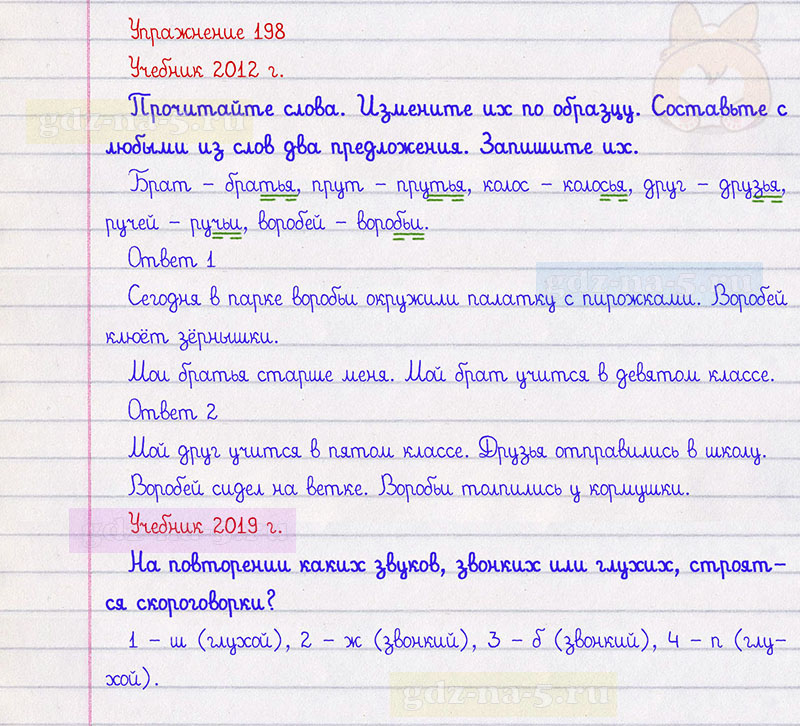 Упражнение 198
Учебник 2012 г.
Прочитайте слова. Измените их по образцу. Составьте с
любыми из слов два предложения. Запишите их.
gdz-na-5.ru
Брат – братья, прут – прутья, колос – колосья, друг – друзья,
ручей – ручьи, воробей – воробьи.
Ответ 1
gdz-na-5.ru
Сегодня в парке воробьи окружили палатку с пирожками. Воробей
клюёт зёрнышки.
Мои братья старше меня. Мой брат учится в девятом классе.
Ответ 2
Мой друг учится в пятом классе. Друзья отправились в школу.
Воробей сидел на ветке. Воробьи толпились у кормушки.
Учебник 2019 г.
gdz-na-5.ru
На повторении каких звуков, звонких или глухих, строят-
ся скороговорки?
1 – ш (глухой), 2 – ж (звонкий), 3 – б (звонкий), 4 – п (глу-
хой).
gdz-na-5.ru